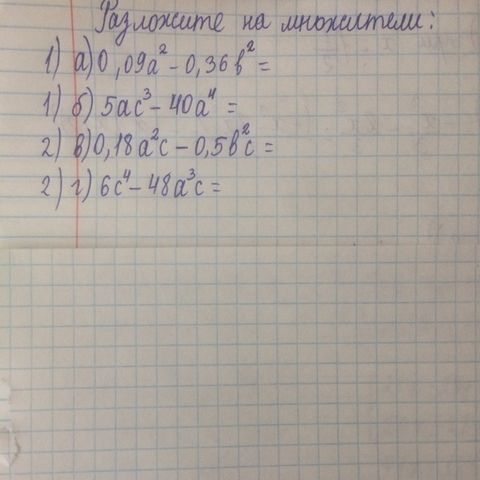 Разложите на множители:
1) а) 0,09а² - 0,36в² =
1) б) 5ас³ - 40а⁴ =
2) в) 0,18а²с - 0,5в²с =
2) г) 6с⁴ - 48а³с =